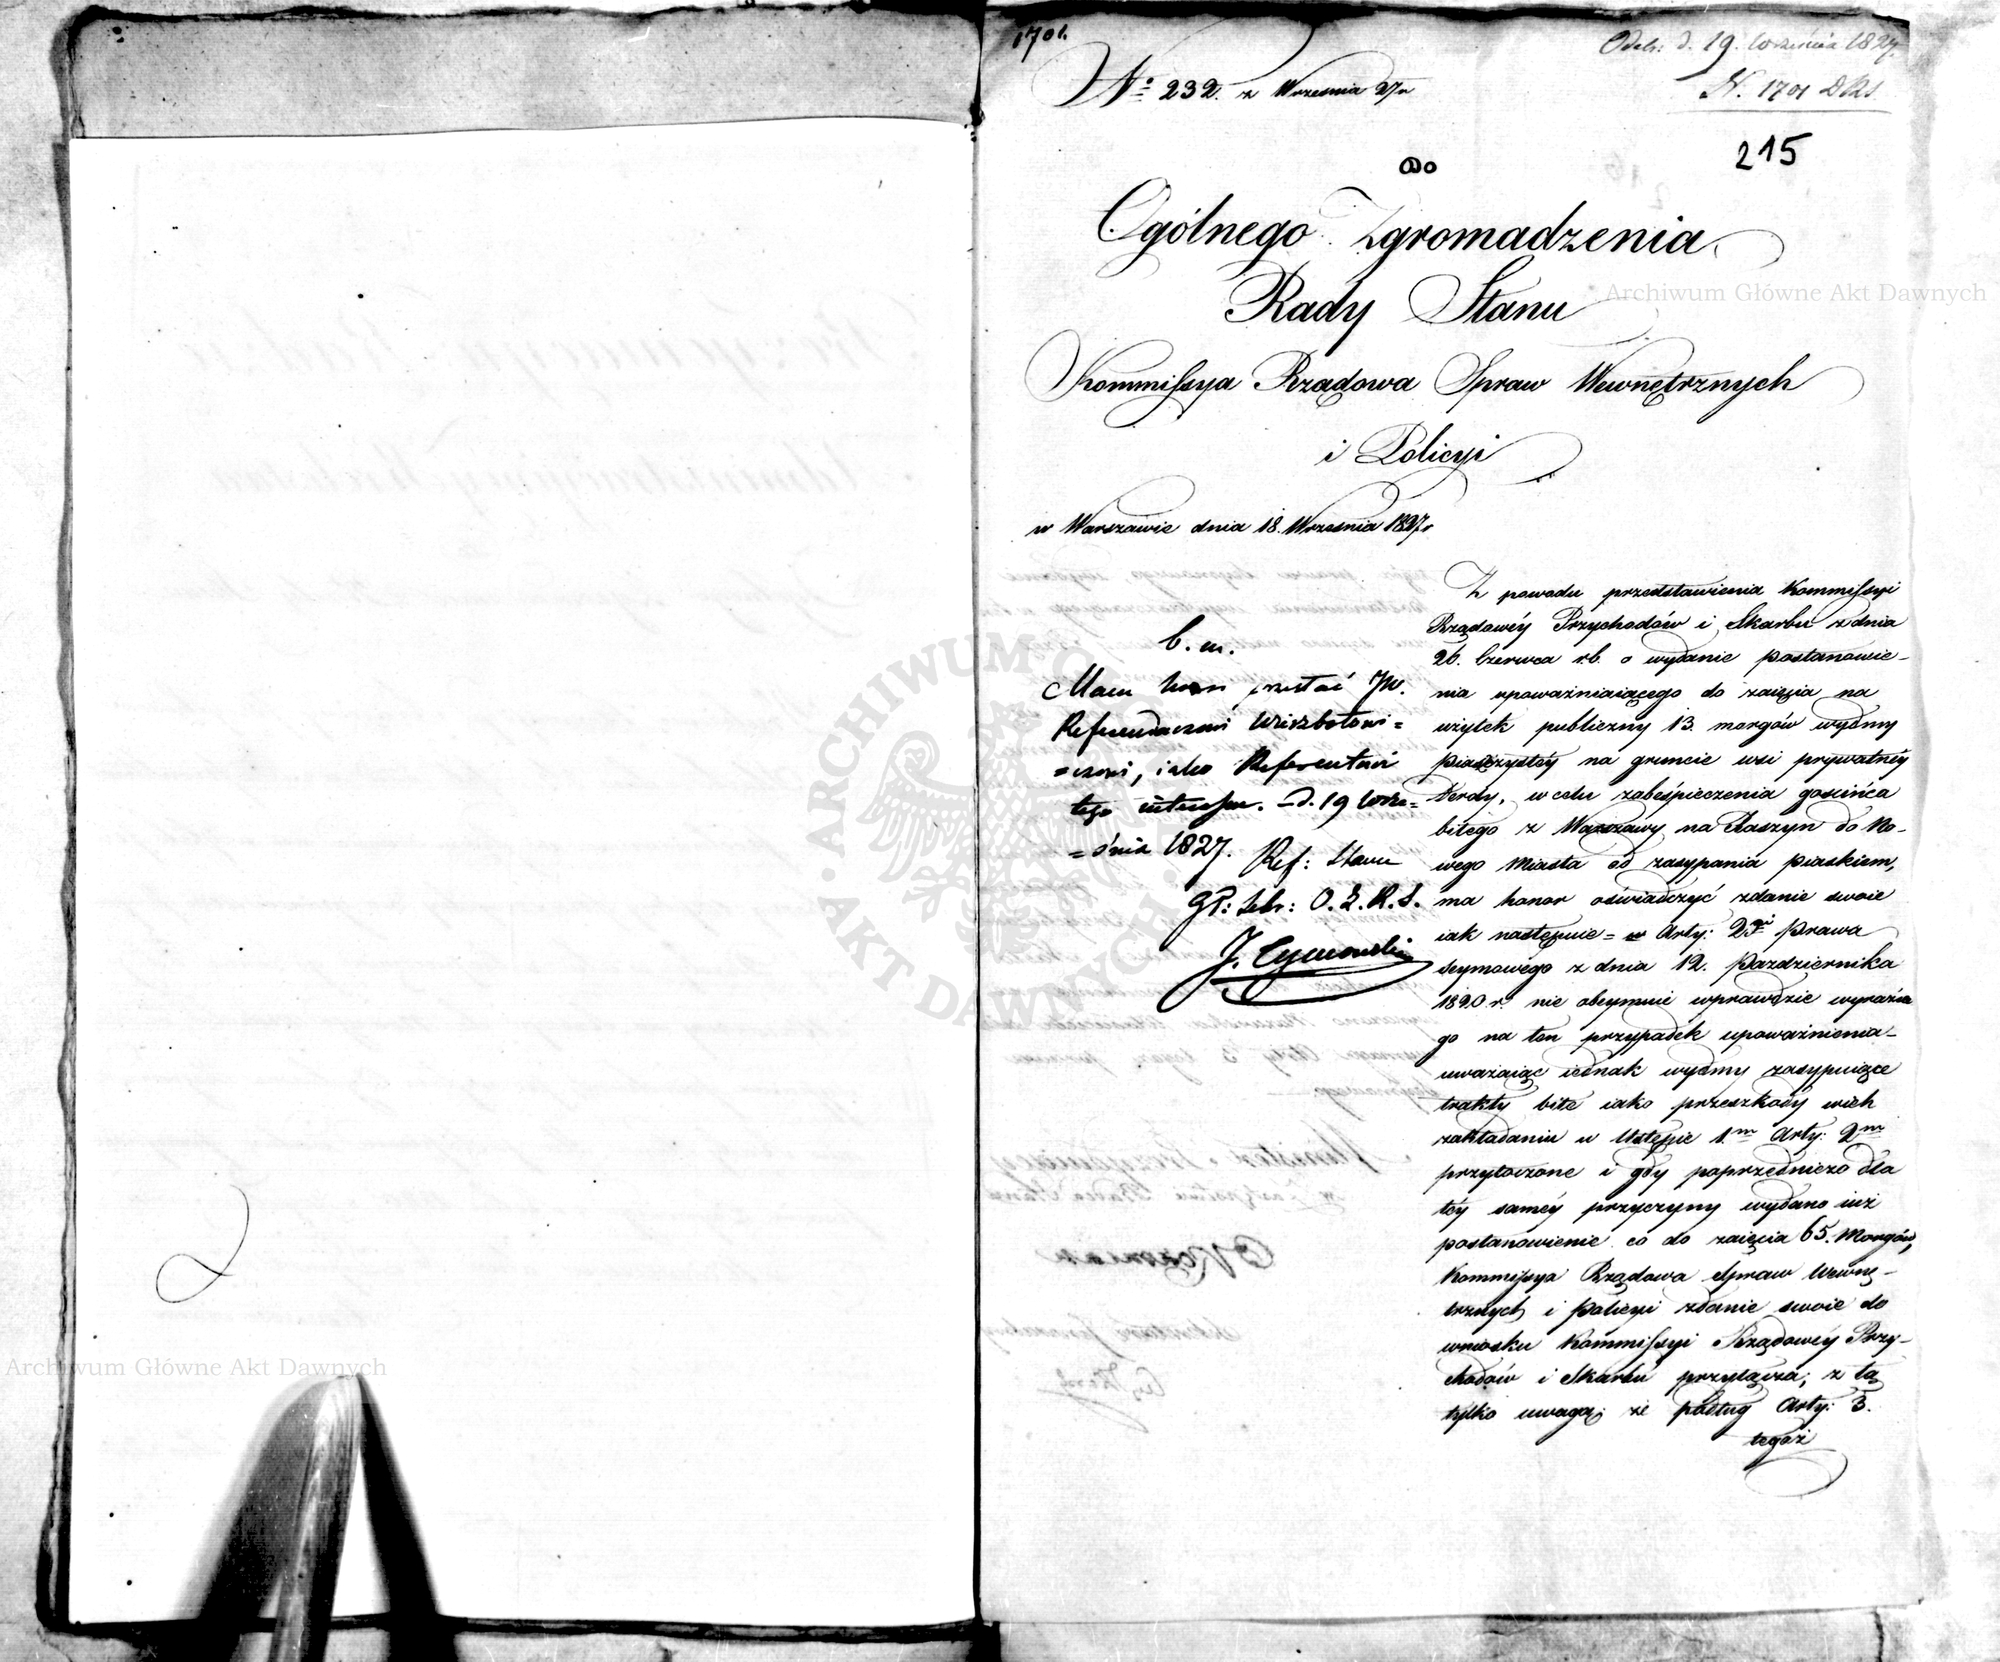 1701.
Odeb: d. 19. Września 1827.
No 232. z Września 27 r
N. 1701 DRS
215
Do
Ogólnego Zgromadzenia
Rady Stanu
Archiwum Główne Akt Dawnych
Kommissya Rządowa Spraw Wewnętrznych
i Policyi
w Warszawie dnia 18. Września 1827 r
b. m.
Mam honor przesłać JW.
Referendarzowi Wiszbotowi=
=czowi, iako Referentowi
tego interessu. – d. 19 Wrze=
=śnia 1827. Ref: Stanu
Sekr: O. Z. R. S.
J. Tymowski
Z powodu przedstawienia Kommissyi
Rządowéy Przychodów i Skarbu z dnia
26. Czerwca r.b. o wydanie postanowie-
nia upoważniaiącego do zaięcia na
użytek publiczny 13. morgów wydmy
piaszczystéy na gruncie wsi prywatnéy
w celu zabeśpieczenia gościńca
bitego z Warszawy na Raszyn do No-
wego Miasta od zasypania piaskiem,
ma honor oświadczyć zdanie swoie
iak następuie = w Arty: 2gi prawa
seymowego z dnia 12. Pazdziernika
1820 r. nie obeymuie wprawdzie wyraźne
go na ten przypadek upoważnienia-
uważaiąc iednak wydmy zasypuiące
trakty bite iako przeszkody w ich
zakładaniu w Ustępie 1.m Arty: 2m
przytoczone i gdy poprzedniczo dla
téy saméy przyczyny wydano iuż
postanowienie co do zaięcia 65. Morgów,
Kommissya Rządowa Spraw Wewnę-
trznych i Policyi zdanie swoie do
wniosku Kommissyi Rządowéy Przy-
chodów i Skarbu przyłącza; z tą
tylko uwagą; że podług Arty: 3.
tegoż
Archiwum Główne Akt Dawnych
ARCHIWUM GŁÓWNE AKT DAWNYCH